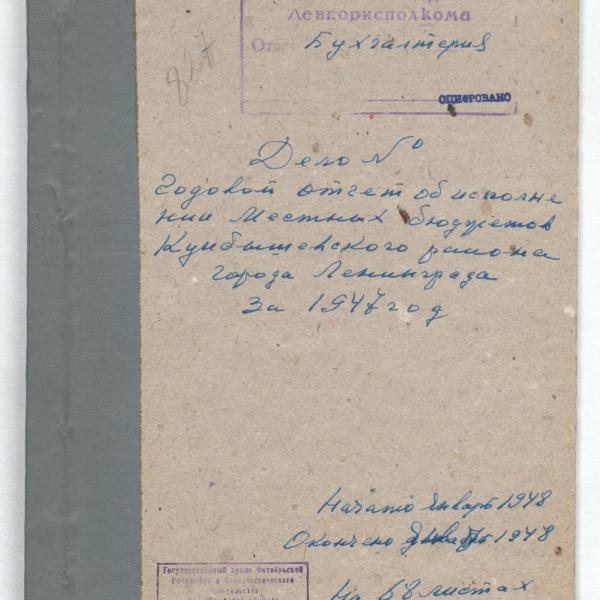 Ленгорисполкома
От
Бухгалтерия
827
ОЦИФРОВАНО
Дело №
Годовой отчет об исполне
нии Местных бюджетов
Куйбышевского района
города Ленинграда
за 1947 год
Начато Январь 1948
Окончено Январь 1948
На 68 листах
Государственный архив Октябрьской
Революции и Социалистического
строительства